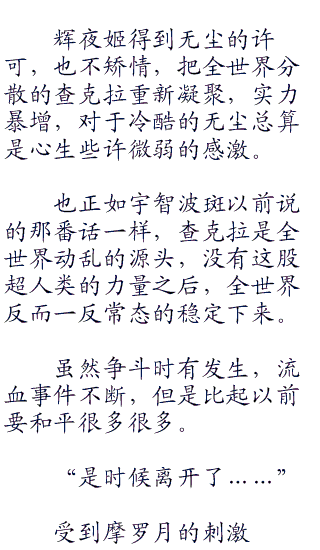 辉夜姬得到无尘的许
可，也不矫情，把全世界分
散的查克拉重新凝聚，实力
暴增，对于冷酷的无尘总算
是心生些许微弱的感激。
也正如宇智波斑以前说
的那番话一样，查克拉是全
世界动乱的源头，没有这股
超人类的力量之后，全世界
反而一反常态的稳定下来。
虽然争斗时有发生，流
血事件不断，但是比起以前
要和平很多很多。
“是时候离开了……”
受到摩罗月的刺激